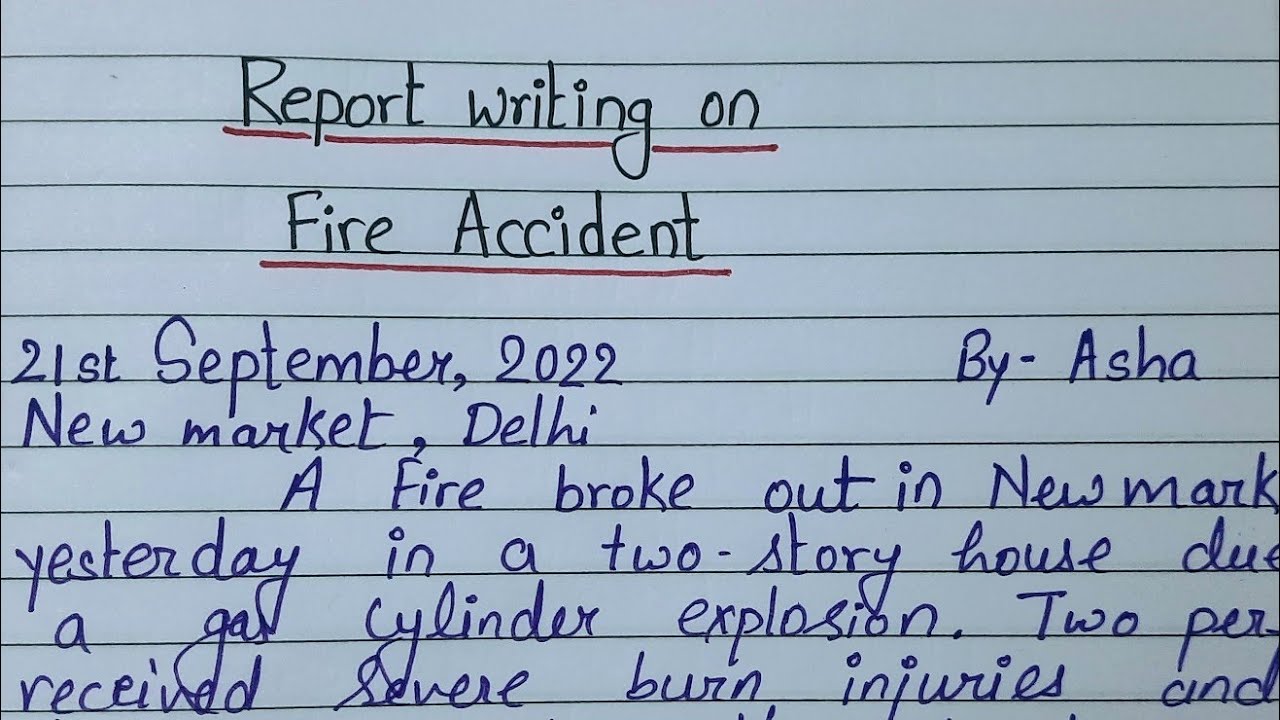 Report writing on
Fire Accident
21st September, 2022 By- Asha
New market, Delhi
A Fire broke out in New mark
yesterday in a two-story house due
a gas cylinder explosion. Two per
received severe burn injuries and